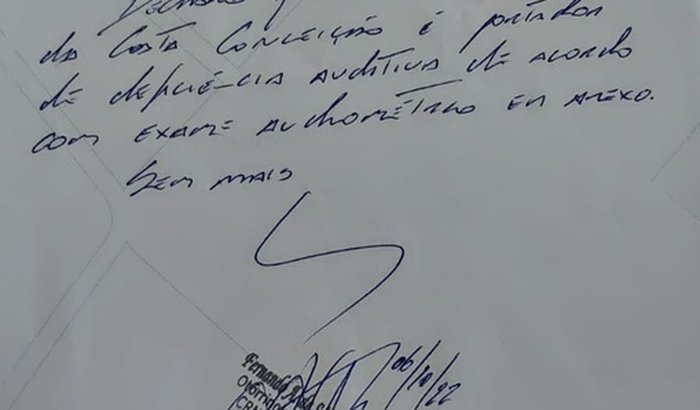 Declaro
da Costa Conceição é portador
de deficiência auditiva de acordo
com exame audiométrico em anexo.
Sem mais
06/10/22
Fernando